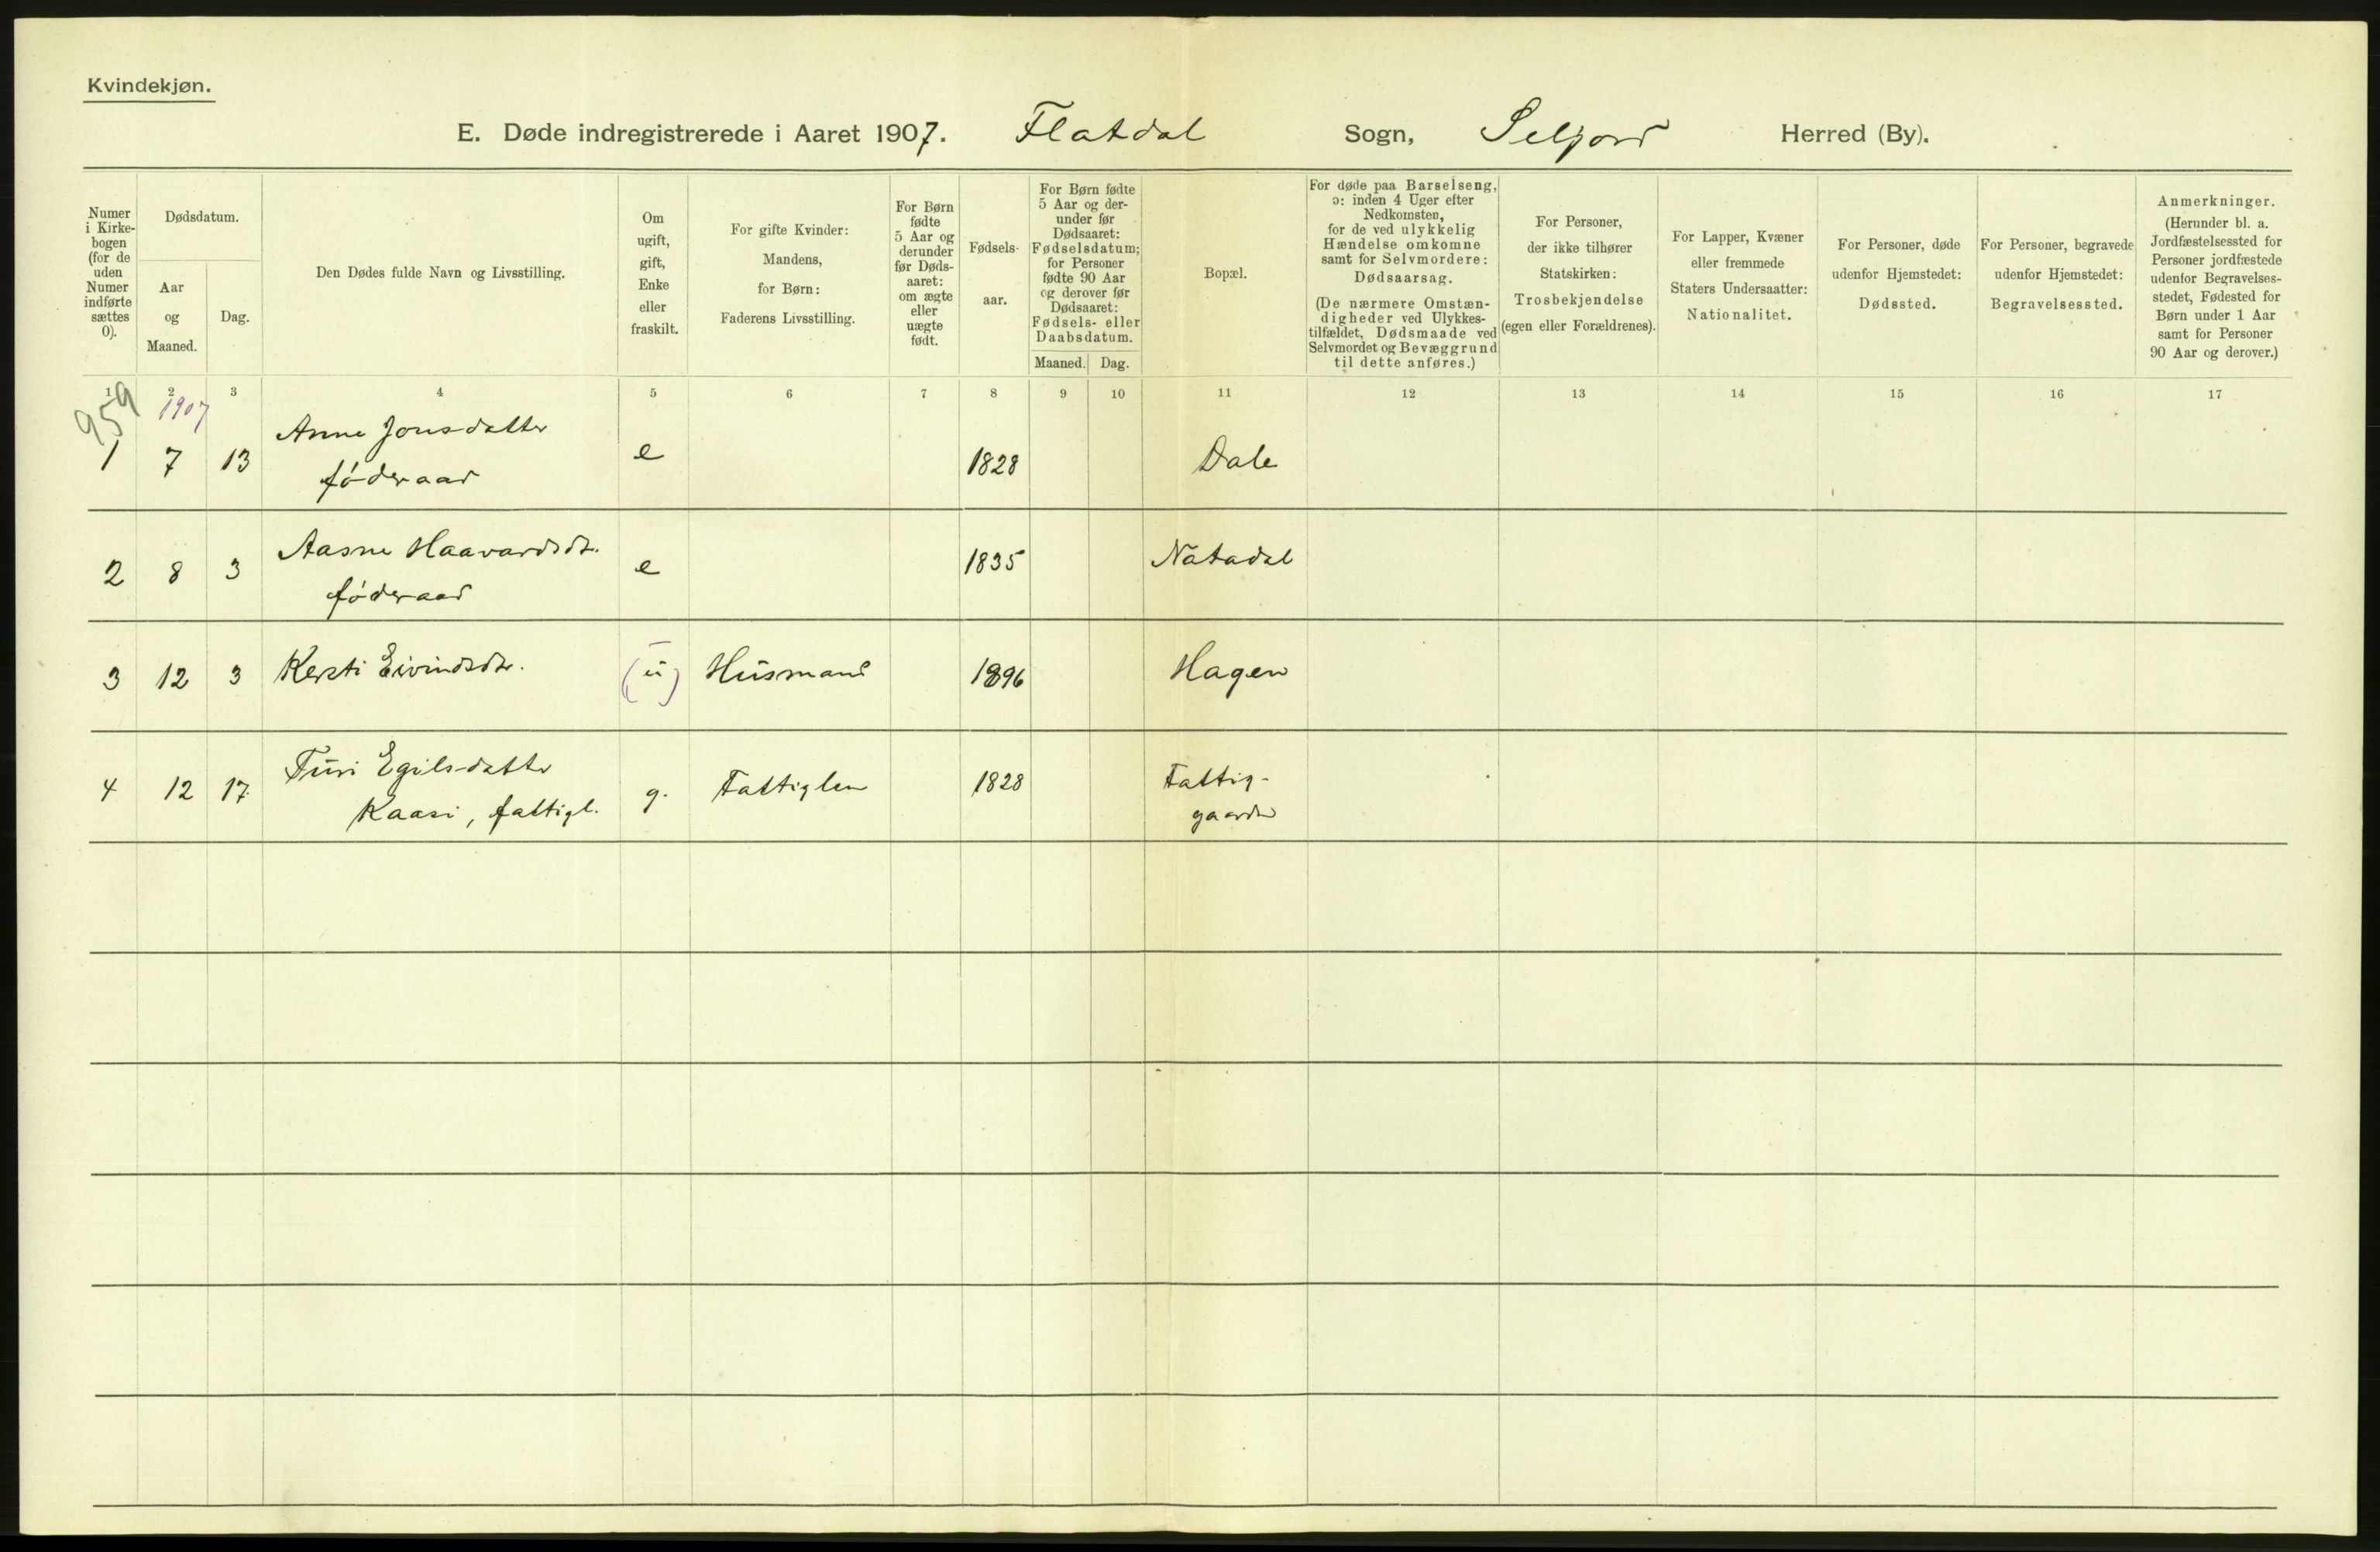 Kvindekjøn.
E. Døde indregistrerede i Aaret 1907. Flatdal Sogn, Seljord Herred (By).
Numer
i Kirke-
bogen
(for de
uden
Numer
indførte
sættes
0).
Dødsdatum.
Aar
og
Maaned.
Dag.
Den Dødes fulde Navn og Livsstilling.
Om
ugift,
gift,
Enke
eller
fraskilt.
For gifte Kvinder:
Mandens,
for Børn:
Faderens Livsstilling.
For Børn
fødte
5 Aar og
derunder
før Døds-
aaret:
om ægte
eller
uægte
født.
Fødsels-
aar.
For Børn fødte
5 Aar og der-
under før
Dødsaaret:
Fødselsdatum;
for Personer
fødte 90 Aar
og derover før
Dødsaaret:
Fødsels- eller
Daabsdatum.
Maaned. Dag.
Bopæl.
For døde paa Barselseng,
ɔ: inden 4 Uger efter
Nedkomsten,
for de ved ulykkelig
Hændelse omkomne
samt for Selvmordere:
Dødsaarsag.
(De nærmere Omstæn-
digheder ved Ulykkes-
tilfældet, Dødsmaade ved
Selvmordet og Bevæggrund
til dette anføres.)
For Personer,
der ikke tilhører
Statskirken:
Trosbekjendelse
(egen eller Forældrenes).
For Lapper, Kvæner
eller fremmede
Staters Undersaatter:
Nationalitet.
For Personer, døde
udenfor Hjemstedet:
Dødssted.
For Personer, begravede
udenfor Hjemstedet:
Begravelsessted.
Anmerkninger.
(Herunder bl. a.
Jordfæstelsessted for
Personer jordfæstede
udenfor Begravelses-
stedet, Fødested for
Børn under 1 Aar
samt for Personer
90 Aar og derover.)
1 2 3 4 5 6 7 8 9 10 11 12 13 14 15 16 17
959 1907
1 7 13 Anne Jonsdatter e 1828 Dale
føderaad
2 8 3 Aasne Haavardsdt. e 1835 Natadal
føderaad
3 12 3 Kersti Eivindsdtr. (u) Husmand 1896 Hagen
4 12 17. Turi Egilsdatter g. Fattiglem 1828 Fattig-
Kaasi, fattigl. gaarden